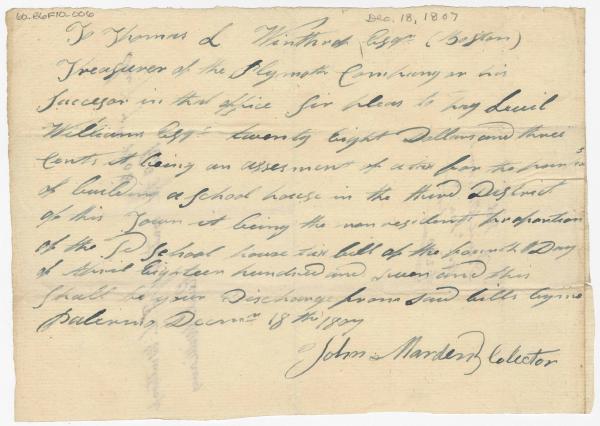 60-E6F10-006
Dec. 18, 1807
To Thomas L Winthrop Esqr (Boston)
Treasurer of the Plymoth Company or his
Succesor in that office Sir pleas to pay Lewil
Williams Esqr twenty Eight Dollars and three
Cents it being an assesment of a tax for the purpos
of building a School house in the third District
of this Town it being the non residents proportion
of the Sd School house tax bill of the fourth Day
of April Eighteen hundred and seven and this
Shall be your Discharge from said bills by me
Palermo Decmr 18th 1807
John Marden Colector